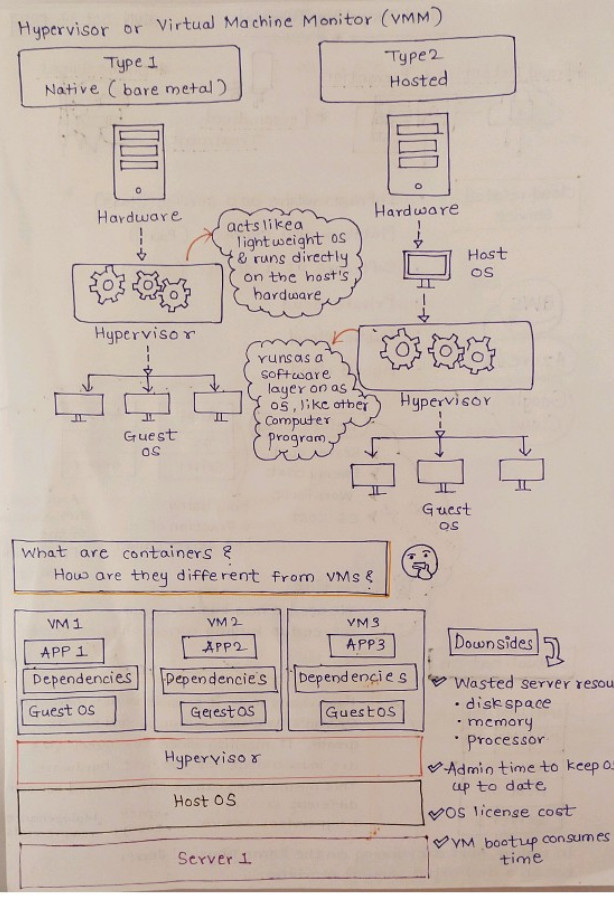 Hypervisor or Virtual Machine Monitor (VMM)
Type 1
Native (bare metal)
Type 2
Hosted
Hardware
acts like a
lightweight OS
& runs directly
on the host's
hardware
Hypervisor
Guest
OS
Hardware
Host
OS
runs as a
software
layer on as
OS, like other
Computer
program
Hypervisor
Guest
OS
What are containers &
How are they different from VMs &
VM 1
APP 1
Dependencies
Guest OS
VM 2
APP2
Dependencies
Guest OS
VM3
APP3
Dependencies
Guest OS
Hypervisor
Host OS
Server 1
Downsides
Wasted server
• disk space
• memory
• processor
Admin time to keep
up to date
OS license cost
VM bootup consumes
time